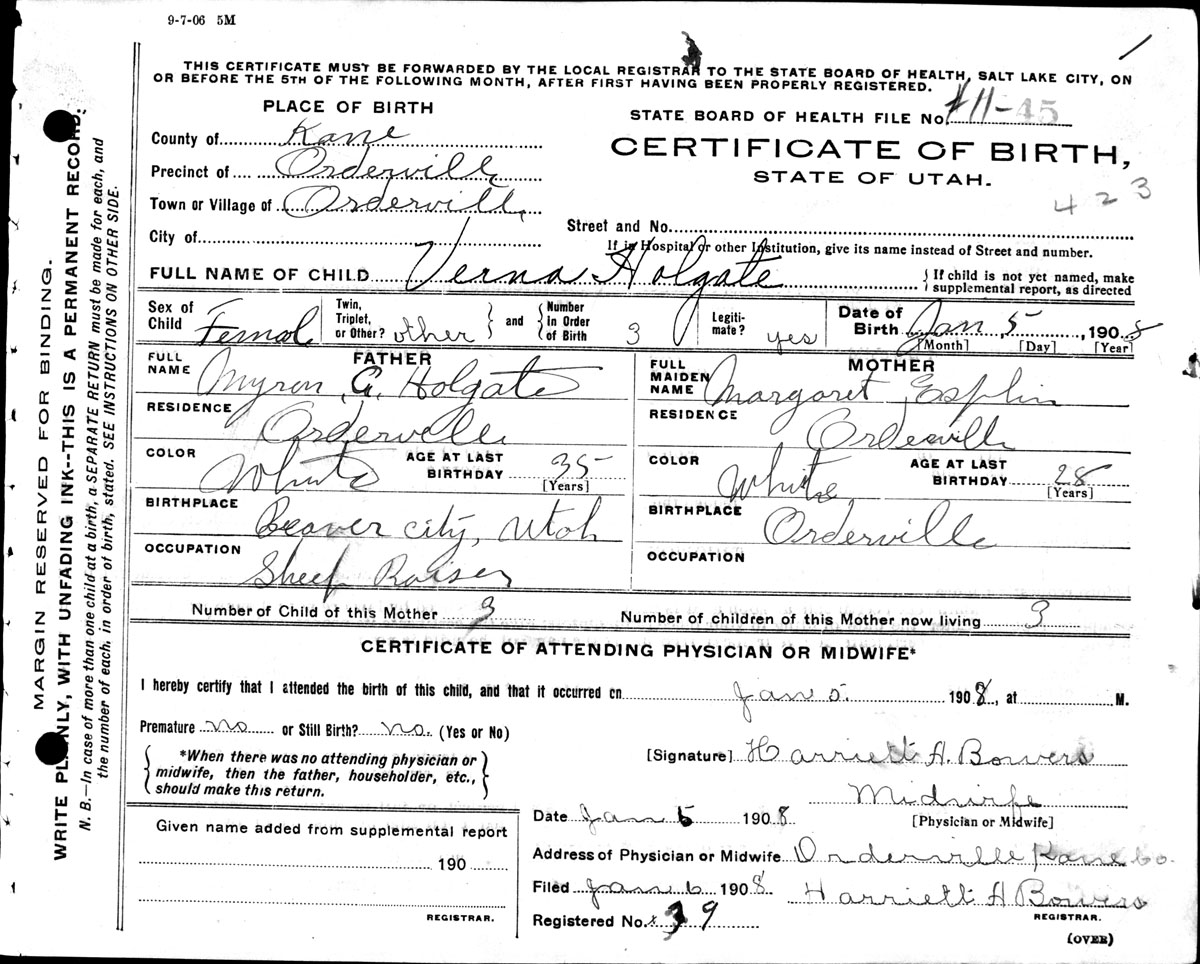 9-7-06 5M
THIS CERTIFICATE MUST BE FORWARDED BY THE LOCAL REGISTRAR TO THE STATE BOARD OF HEALTH, SALT LAKE CITY, ON
OR BEFORE THE 5TH OF THE FOLLOWING MONTH, AFTER FIRST HAVING BEEN PROPERLY REGISTERED.
PLACE OF BIRTH
County of Kane
Precinct of Orderville
Town or Village of Orderville
City of
STATE BOARD OF HEALTH FILE No. 11-45
CERTIFICATE OF BIRTH,
STATE OF UTAH.
423
Street and No.
If in Hospital or other Institution, give its name instead of Street and number.
FULL NAME OF CHILD Verna Holgate
{ If child is not yet named, make
supplemental report, as directed
Sex of Child Female
Twin, Triplet, or Other? other } and { Number In Order of Birth 3
Legiti-mate? yes
Date of Birth Jan 5, 1908
[Month] [Day] [Year]
FATHER
FULL NAME Myron G. Holgate
RESIDENCE Orderville
COLOR White
AGE AT LAST BIRTHDAY 35
[Years]
BIRTHPLACE Beaver city, Utah
OCCUPATION Sheep Raiser
MOTHER
FULL MAIDEN NAME Margaret Esplin
RESIDENCE Orderville
COLOR White
AGE AT LAST BIRTHDAY 28
[Years]
BIRTHPLACE Orderville
OCCUPATION
Number of Child of this Mother 3
Number of children of this Mother now living 3
CERTIFICATE OF ATTENDING PHYSICIAN OR MIDWIFE*
I hereby certify that I attended the birth of this child, and that it occurred on Jan 5. 1908, at M.
Premature no or Still Birth? no. (Yes or No)
{ *When there was no attending physician or
midwife, then the father, householder, etc.,
should make this return. }
[Signature] Harriett A. Bowers
Midwife
[Physician or Midwife]
Given name added from supplemental report
190
REGISTRAR.
Date Jan 6 1908
Address of Physician or Midwife Orderville Kane Co.
Filed Jan 6 1908 Harriett A Bowers
REGISTRAR.
Registered No. 39
(OVER)
MARGIN RESERVED FOR BINDING.
WRITE PLAINLY, WITH UNFADING INK--THIS IS A PERMANENT RECORD.
N. B.—In case of more than one child at a birth, a SEPARATE RETURN must be made for each, and
the number of each, in order of birth, stated. SEE INSTRUCTIONS ON OTHER SIDE.